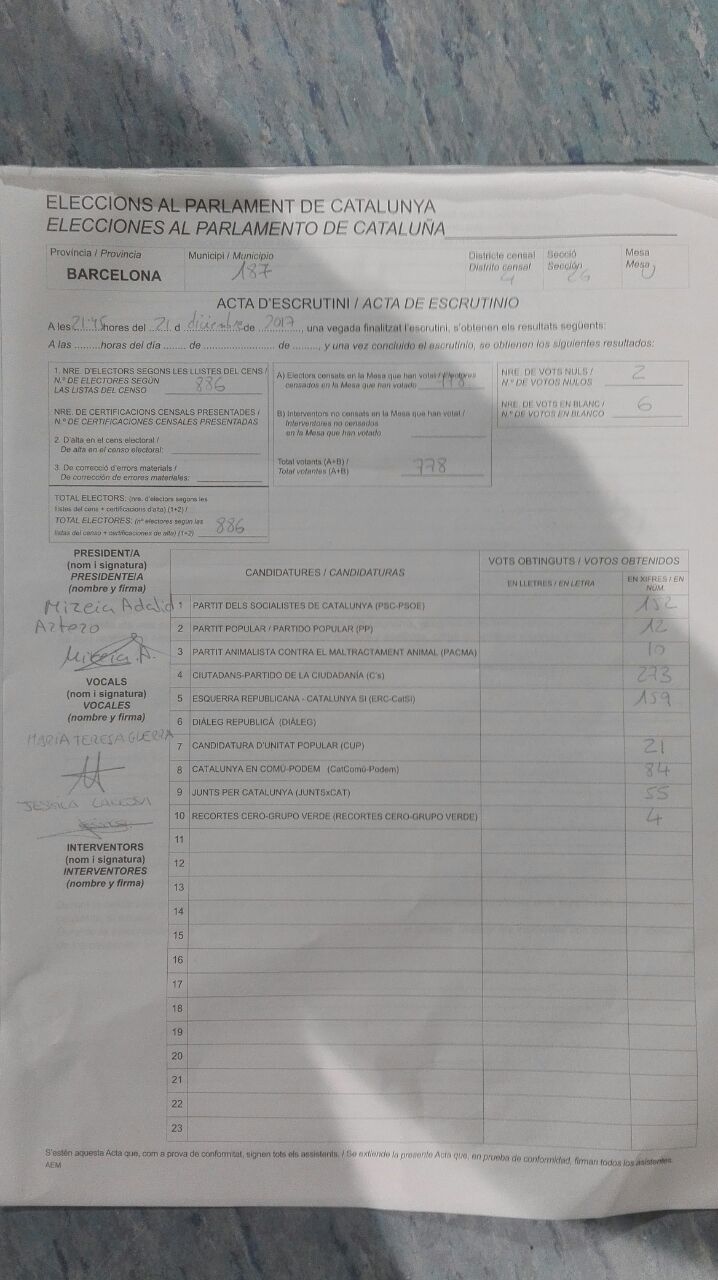 ELECCIONS AL PARLAMENT DE CATALUNYA
ELECCIONES AL PARLAMENTO DE CATALUÑA
Província / Provincia
BARCELONA
Municipi / Municipio
187
Districte censal
Distrito censal
4
Secció
Sección
26
Mesa
Mesa
U
ACTA D'ESCRUTINI / ACTA DE ESCRUTINIO
A les 21:45 hores del 21 d diciembre de 2017, una vegada finalitzat l'escrutini, s'obtenen els resultats següents:
A las ......... horas del día ........ de .................. de ........., y una vez concluido el escrutinio, se obtienen los siguientes resultados:
1. NRE. D'ELECTORS SEGONS LES LLISTES DEL CENS /
N.º DE ELECTORES SEGÚN
LAS LISTAS DEL CENSO 886
NRE. DE CERTIFICACIONS CENSALS PRESENTADES /
N.º DE CERTIFICACIONES CENSALES PRESENTADAS
2. D'alta en el cens electoral /
De alta en el censo electoral:
3. De correcció d'errors materials /
De corrección de errores materiales:
TOTAL ELECTORS: (nre. d'electors segons les
llistes del cens + certificacions d'alta) (1+2) /
TOTAL ELECTORES: (nº electores según las
listas del censo + certificaciones de alta) (1+2) 886
A) Electors censats en la Mesa que han votat / Electores
censados en la Mesa que han votado 778
B) Interventors no censats en la Mesa que han votat /
Interventores no censados
en la Mesa que han votado
Total votants (A+B) /
Total votantes (A+B) 778
NRE. DE VOTS NULS /
N.º DE VOTOS NULOS 2
NRE. DE VOTS EN BLANC /
N.º DE VOTOS EN BLANCO 6
PRESIDENT/A
(nom i signatura)
PRESIDENTE/A
(nombre y firma)
Mireia Adalid
Artero
Mireia A.
VOCALS
(nom i signatura)
VOCALES
(nombre y firma)
MARIA TERESA GUERRA
JESSICA
INTERVENTORS
(nom i signatura)
INTERVENTORES
(nombre y firma)
CANDIDATURES / CANDIDATURAS
VOTS OBTINGUTS / VOTOS OBTENIDOS
EN LLETRES / EN LETRA
EN XIFRES / EN NÚM.
1 PARTIT DELS SOCIALISTES DE CATALUNYA (PSC-PSOE) 152
2 PARTIT POPULAR / PARTIDO POPULAR (PP) 12
3 PARTIT ANIMALISTA CONTRA EL MALTRACTAMENT ANIMAL (PACMA) 10
4 CIUTADANS-PARTIDO DE LA CIUDADANÍA (C's) 273
5 ESQUERRA REPUBLICANA - CATALUNYA SÍ (ERC-CatSí) 159
6 DIÀLEG REPUBLICÀ (DIÀLEG)
7 CANDIDATURA D'UNITAT POPULAR (CUP) 21
8 CATALUNYA EN COMÚ-PODEM (CatComú-Podem) 84
9 JUNTS PER CATALUNYA (JUNTSxCAT) 55
10 RECORTES CERO-GRUPO VERDE (RECORTES CERO-GRUPO VERDE) 4
11
12
13
14
15
16
17
18
19
20
21
22
23
S'estén aquesta Acta que, com a prova de conformitat, signen tots els assistents. / Se extiende la presente Acta que, en prueba de conformidad, firman todos los asistentes.
AEM